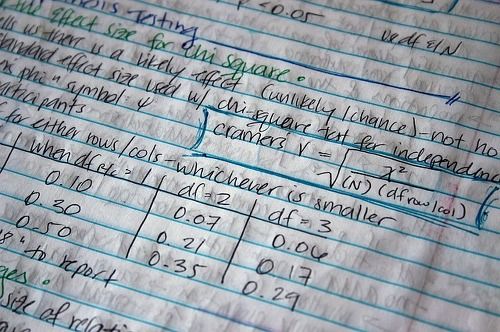 testing
p < 0.05
effect size for chi square.
use df & N
us there is a likely effect (unlikely /chance) - not
standard effect size used w/ chi square test for independence
phi " symbol φ
cramers V = √ x² / (N) (df row/col)
participants
for either rows/cols - whichever is smaller
when df = 1 df = 2 df = 3
0.10 0.07 0.06
0.30 0.21 0.17
0.50 0.35 0.29
" to report
size of